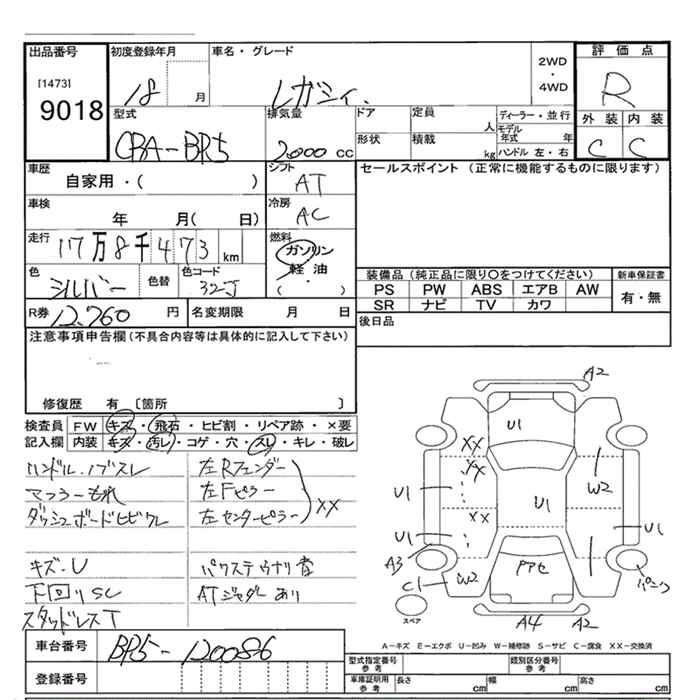 出品番号
[1473]
9018
初度登録年月
18 月
車名・グレード
レガシィ
2WD
・
4WD
評価点
R
外装 内装
C C
型式
CBA-BR5
排気量
2000 cc
ドア
定員
人
形状
積載
kg
ディーラー・並行
モデル
年式 年
ハンドル 左・右
車歴
自家用・( )
シフト
AT
セールスポイント (正常に機能するものに限ります)
車検
年 月( 日)
冷房
AC
走行
17万8千473 km
燃料
ガソリン
軽油
( ・ )
色
シルバー
色替
色コード
32J
装備品 (純正品に限り〇をつけてください)
新車保証書
PS PW ABS エアB AW
SR ナビ TV カワ
有・無
R券 12,760 円
名変期限 月 日
後日品
注意事項申告欄(不具合内容等は具体的に記入して下さい)
修復歴 有 [箇所 ]
検査員
記入欄
FW キズ・飛石・ヒビ割・リペア跡・×要
内装 キズ・汚レ・コゲ・穴・スレ・キレ・破レ
ハンドル.ノブスレ
マフラーもれ
ダッシュボードヒビワレ
キズ・U
下回りSC
スタッドレスT
左Rフェンダー
左Fピラー
左センターピラー
XX
パワステウナリ音
ATジャダーあり
A2
U1
XX
XX
W2
U1
U1
XX
U1
U1
A3
C1
W2
アアセ
パンク
スペア
A4
A2
A-キズ E-エクボ U-凹み W-補修跡 S-サビ C-腐食 XX-交換済
車台番号
BR5-120086
登録番号
型式指定番号
参考
類別区分番号
参考
車庫証明用
参考
長さ cm
幅 cm
高さ cm